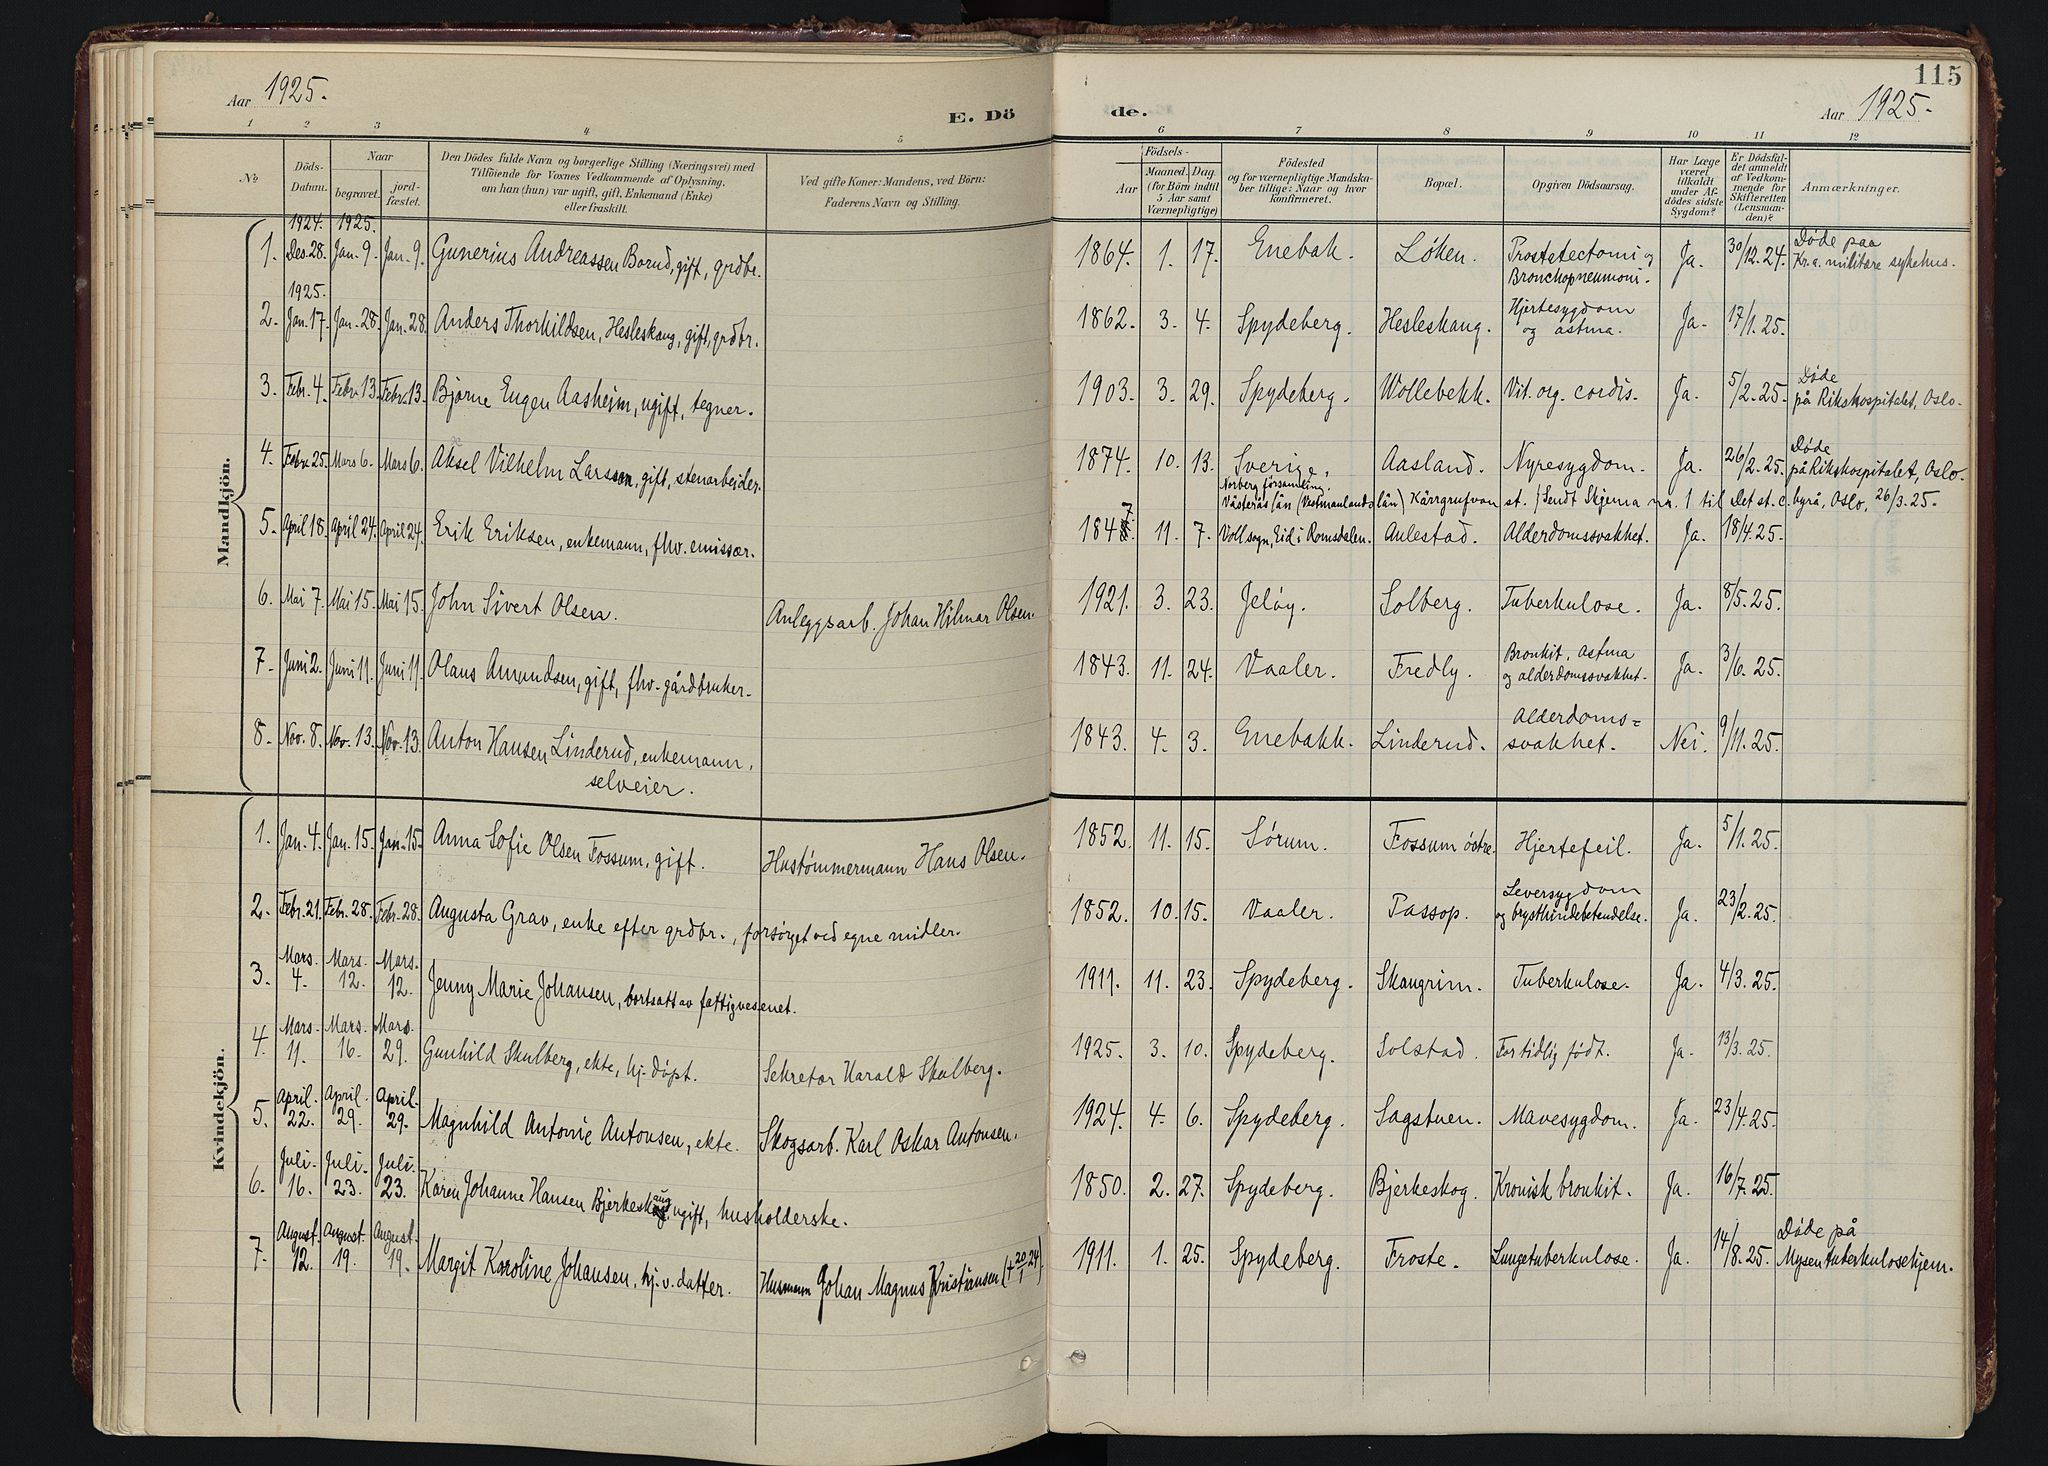 Aar 1925.
E. Dö
1 2 3 4 5
№
Döds-Datum.
Naar
begravet.
jord-fæstet.
Den Dödes fulde Navn og borgerlige Stilling (Næringsvei) med
Tilföiende for Voxnes Vedkommende af Oplysning.
om han (hun) var ugift, gift, Enkemand (Enke)
eller fraskilt.
Ved gifte Koner: Mandens, ved Börn:
Faderens Navn og Stilling.
Mandkjön.
1924. 1925.
1. Des. 28. Jan. 9. Jan. 9. Gunerius Andreassen Borud, gift, grdbr.
1925.
2. Jan. 17. Jan. 28. Jan. 28. Anders Thorkildsen, Hesleskaug, gift, grdbr.
3. Febr. 4. Febr. 13. Febr. 13. Bjarne Eugen Aasheim, ugift, tegner.
4. Febr. 25. Mars 6. Mars 6. Aksel Vilhelm Larsson, gift, stenarbeider.
5. April 18. April 24. April 24. Erik Eriksen, enkemann, fhv. emissær.
6. Mai 7. Mai 15. Mai 15. John Sivert Olsen. Anleggsarb. Johan Hilmar Olsen.
7. Juni 2. Juni 11. Juni 11. Olaus Amundsen, gift, fhv. gårdbruker.
8. Nov. 8. Nov. 13. Nov. 13. Anton Hansen Linderud, enkemann,
selveier.
Kvindekjön.
1. Jan. 4. Jan. 15. Jan. 15. Anna Sofie Olsen Fossum, gift. Hustømmermann Hans Olsen.
2. Febr. 21. Febr. 28. Febr. 28. Augusta Grav, enke efter grdbr., forsørget ved egne midler.
3. Mars. 4. Mars. 12. Mars. 12. Jenny Marie Johansen, bortsatt av fattigvesenet.
4. Mars. 11. Mars. 16. Mars. 29. Gunhild Skulberg, ekte, hj. døpt. Sekretær Harald Skulberg.
5. April. 22. April. 29. April. 29. Magnhild Antonie Antonsen, ekte. Skogsarb. Karl Oskar Antonsen.
6. Juli. 16. Juli. 23. Juli. 23. Karen Johanne Hansen Bjerkeskaug ugift, husholderske.
7. August. 12. August 19. August. 19. Margit Karoline Johansen, hj. v. datter. Husmann Johan Magnus Kristiansen († 20/1 24)
115
de.
Aar 1925.
6 7 8 9 10 11 12
Aar
Födsels-
Maaned. Dag.
(for Börn indtil
5 Aar samt
Værnepligtige)
Födested
og for værnepligtige Mandska-
ber tillige: Naar og hvor
konfirmeret.
Bopæl.
Opgiven Dödsaarsag.
Har Læge
været
tilkaldt
under Af-
dödes sidste
Sygdom?
Er Dödsfal-
det anmeldt
af Vedkom-
mende for
Skifteretten
(Lensman-
den)?
Anmærkninger.
1864. 1. 17. Enebak. Løken. Prostatectomi og Bronchopneumoni. Ja. 30/12.24. Døde paa
Kr.a. militære sykehus.
1862. 3. 4. Spydeberg. Hesleskaug. Hjertesygdom og astma. Ja. 17/1.25.
1903. 3. 29. Spydeberg. Wollebekk. Vit. org. cordis. Ja. 5/2.25. Døde
på Rikshospitalet, Oslo.
1874. 10. 13. Sverige, Aasland. Nyresygdom. Ja. 26/2.25. Døde
på Rikshospitalet, Oslo.
Norberg församling,
Västerås län (Vestmanlands län) Kärrgrufvan st. / Sendt Skjema nr. 1 til Det st. c. byrå, Oslo, 26/3.25.
1847. 11. 7. Voll sogn, Eid i Romsdalen. Aulestad. Alderdomssvakhet. Ja. 18/4.25.
1921. 3. 23. Jeløy. Solberg. Tuberkulose. Ja. 8/5.25.
1843. 11. 24. Vaaler. Fredly. Bronkit, astma
og alderdomssvakhet. Ja. 3/6.25.
1843. 4. 3. Enebakk. Linderud. Alderdoms=
svakhet. Nei. 9/11.25.
1852. 11. 15. Sørum. Fossum østre. Hjertefeil. Ja. 5/1.25.
1852. 10. 15. Vaaler. Passop. Leversygdom
og brysthindebetendelse. Ja. 23/2.25.
1911. 11. 23. Spydeberg. Skaugrim. Tuberkulose. Ja. 4/3.25.
1925. 3. 10. Spydeberg. Solstad. For tidlig født. Ja. 13/3.25.
1924. 4. 6. Spydeberg. Sagstuen. Mavesygdom. Ja. 23/4.25.
1850. 2. 27. Spydeberg. Bjerkeskog. Kronisk bronkit. Ja. 16/7.25.
1911. 1. 25. Spydeberg. Froste. Lungetuberkulose. Ja. 14/8.25. Døde på
Mysen tuberkulosehjem.